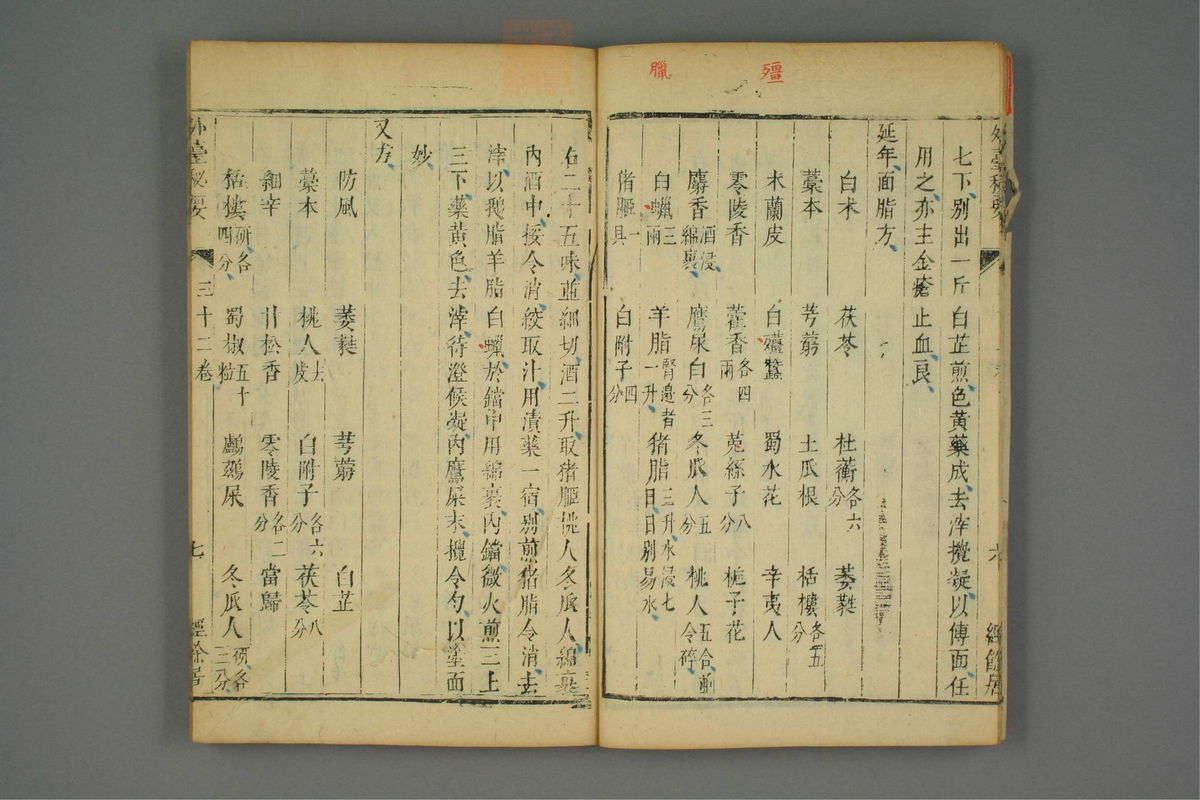 殭
臘
外臺秘要
六
經餘居
七下別出一斤白芷煎色黃藥成去滓攪凝以傅面任
用之亦主金瘡止血良
延年面脂方
白术 茯苓 杜蘅各六分 萎蕤
藁本 芎藭 土瓜根 栝樓各五分
木蘭皮 白殭蠶 蜀水花 辛夷人
零陵香 藿香各四兩 菟絲子八分 梔子花
麝香酒浸綿裹 鷹屎白各三分 冬瓜人五分 桃人五合令碎
白蠟三兩 羊脂腎邊者一升 猪脂三升水浸七日日別易水
猪胰一具 白附子四分
右二十五味並細切酒二升取猪胰桃人冬瓜人綿裹
內酒中挼令消絞取汁用漬藥一宿別煎猪脂令消去
滓以鵝脂羊脂白蠟於鐺中用綿裹內鐺微火煎三上
三下藥黃色去滓待澄候凝內鷹屎末攪令勻以塗面
妙
又方
防風 萎蕤 芎藭 白芷
藁本 桃人去皮 白附子各六分 茯苓八分
細辛 甘松香 零陵香各二分 當歸
栝樓研各四分 蜀椒五十粒 鸕鷀屎 冬瓜人研各三分
外臺秘要
三十二卷
七
經餘居